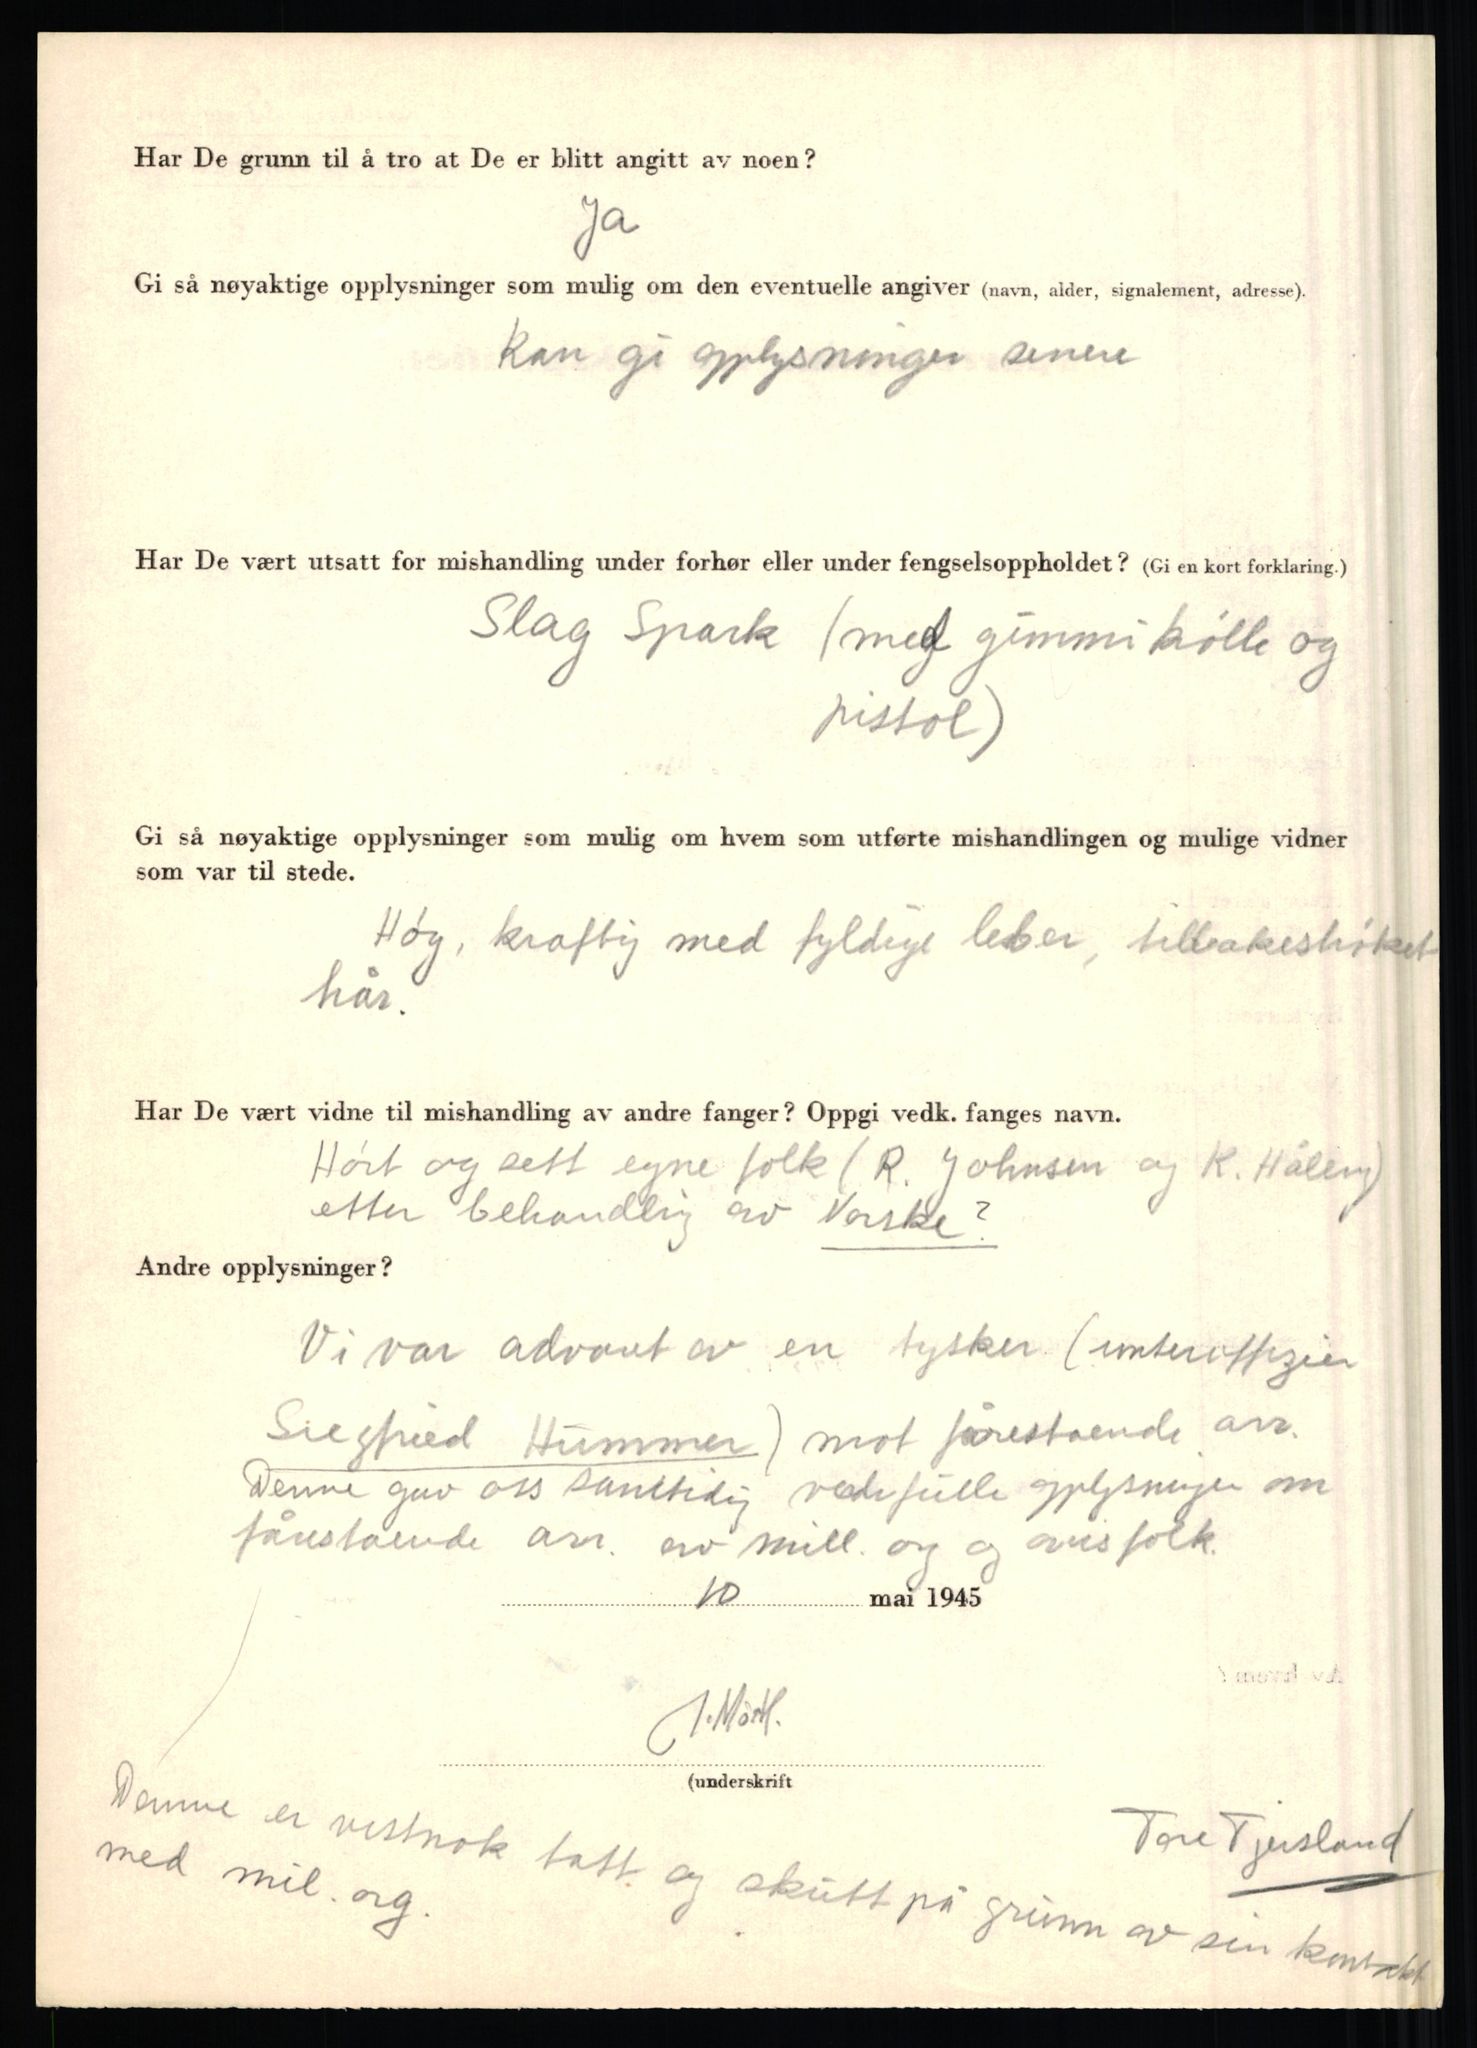 Har De grunn til å tro at De er blitt angitt av noen?
Ja
Gi så nøyaktige opplysninger som mulig om den eventuelle angiver (navn, alder, signalement, adresse).
Kan gi opplysninger senere
Har De vært utsatt for mishandling under forhør eller under fengselsoppholdet? (Gi en kort forklaring.)
Slag Spark (med gummikølle og
pistol)
Gi så nøyaktige opplysninger som mulig om hvem som utførte mishandlingen og mulige vidner
som var til stede.
Høy, kraftig med fyldige leber, tilbakestrøket
hår.
Har De vært vidne til mishandling av andre fanger? Oppgi vedk. fanges navn.
Hørt og sett egne folk (R. Johnsen og K.
etter behandlig av
Andre opplysninger?
Vi var advart av en tysker (unteroffizier
Siegfried Hummer) mot førestaende arr.
Denne gav oss samtidig verdifulle opplysninger om
førestaende arr. av mill. org og avisfolk.
10 mai 1945
Av hvem?
(underskrift
Tore Tjersland
Denne er vistnok tatt og skutt på grunn av sin kontakt
med mil. org.